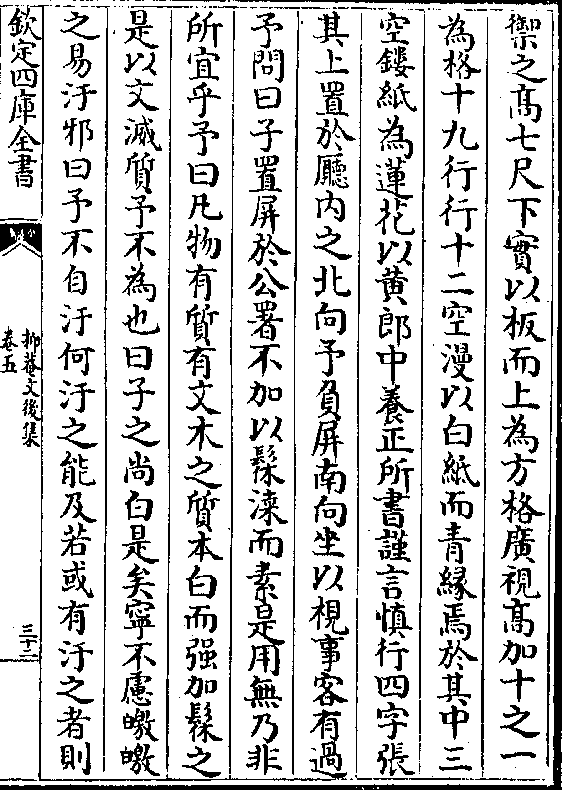 禦之髙七尺下實以板而上為方格廣視髙加十之一
為格十九行行十二空漫以白紙而青緣焉於其中三
空鏤紙為蓮花以黄郎中養正所書謹言慎行四字張
其上置於廳内之北向予負屏南向坐以視事客有過
予問曰子置屏於公署不加以髹㴃而素是用無乃非
所宜乎予曰凡物有質有文木之質本白而强加髹之
是以文滅質予不為也曰子之尚白是矣寧不慮皦皦
之易汙邪曰予不自汙何汙之能及若或有汙之者則
欽定四庫全書
抑菴文後集
卷五
三十二